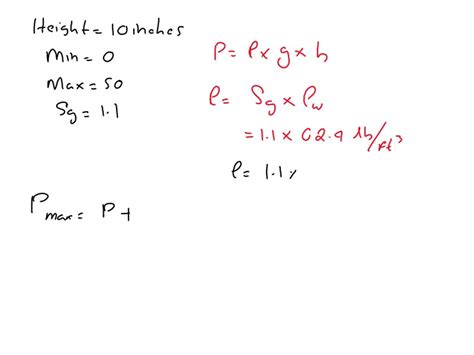 Height = 10 inches
Min = 0
Max = 50
Sg = 1.1
P = ρ x g x h
ρ = Sg x ρw
= 1.1 x 62.9 lb/ft³
ρ = 1.1 x
Pmax = P +